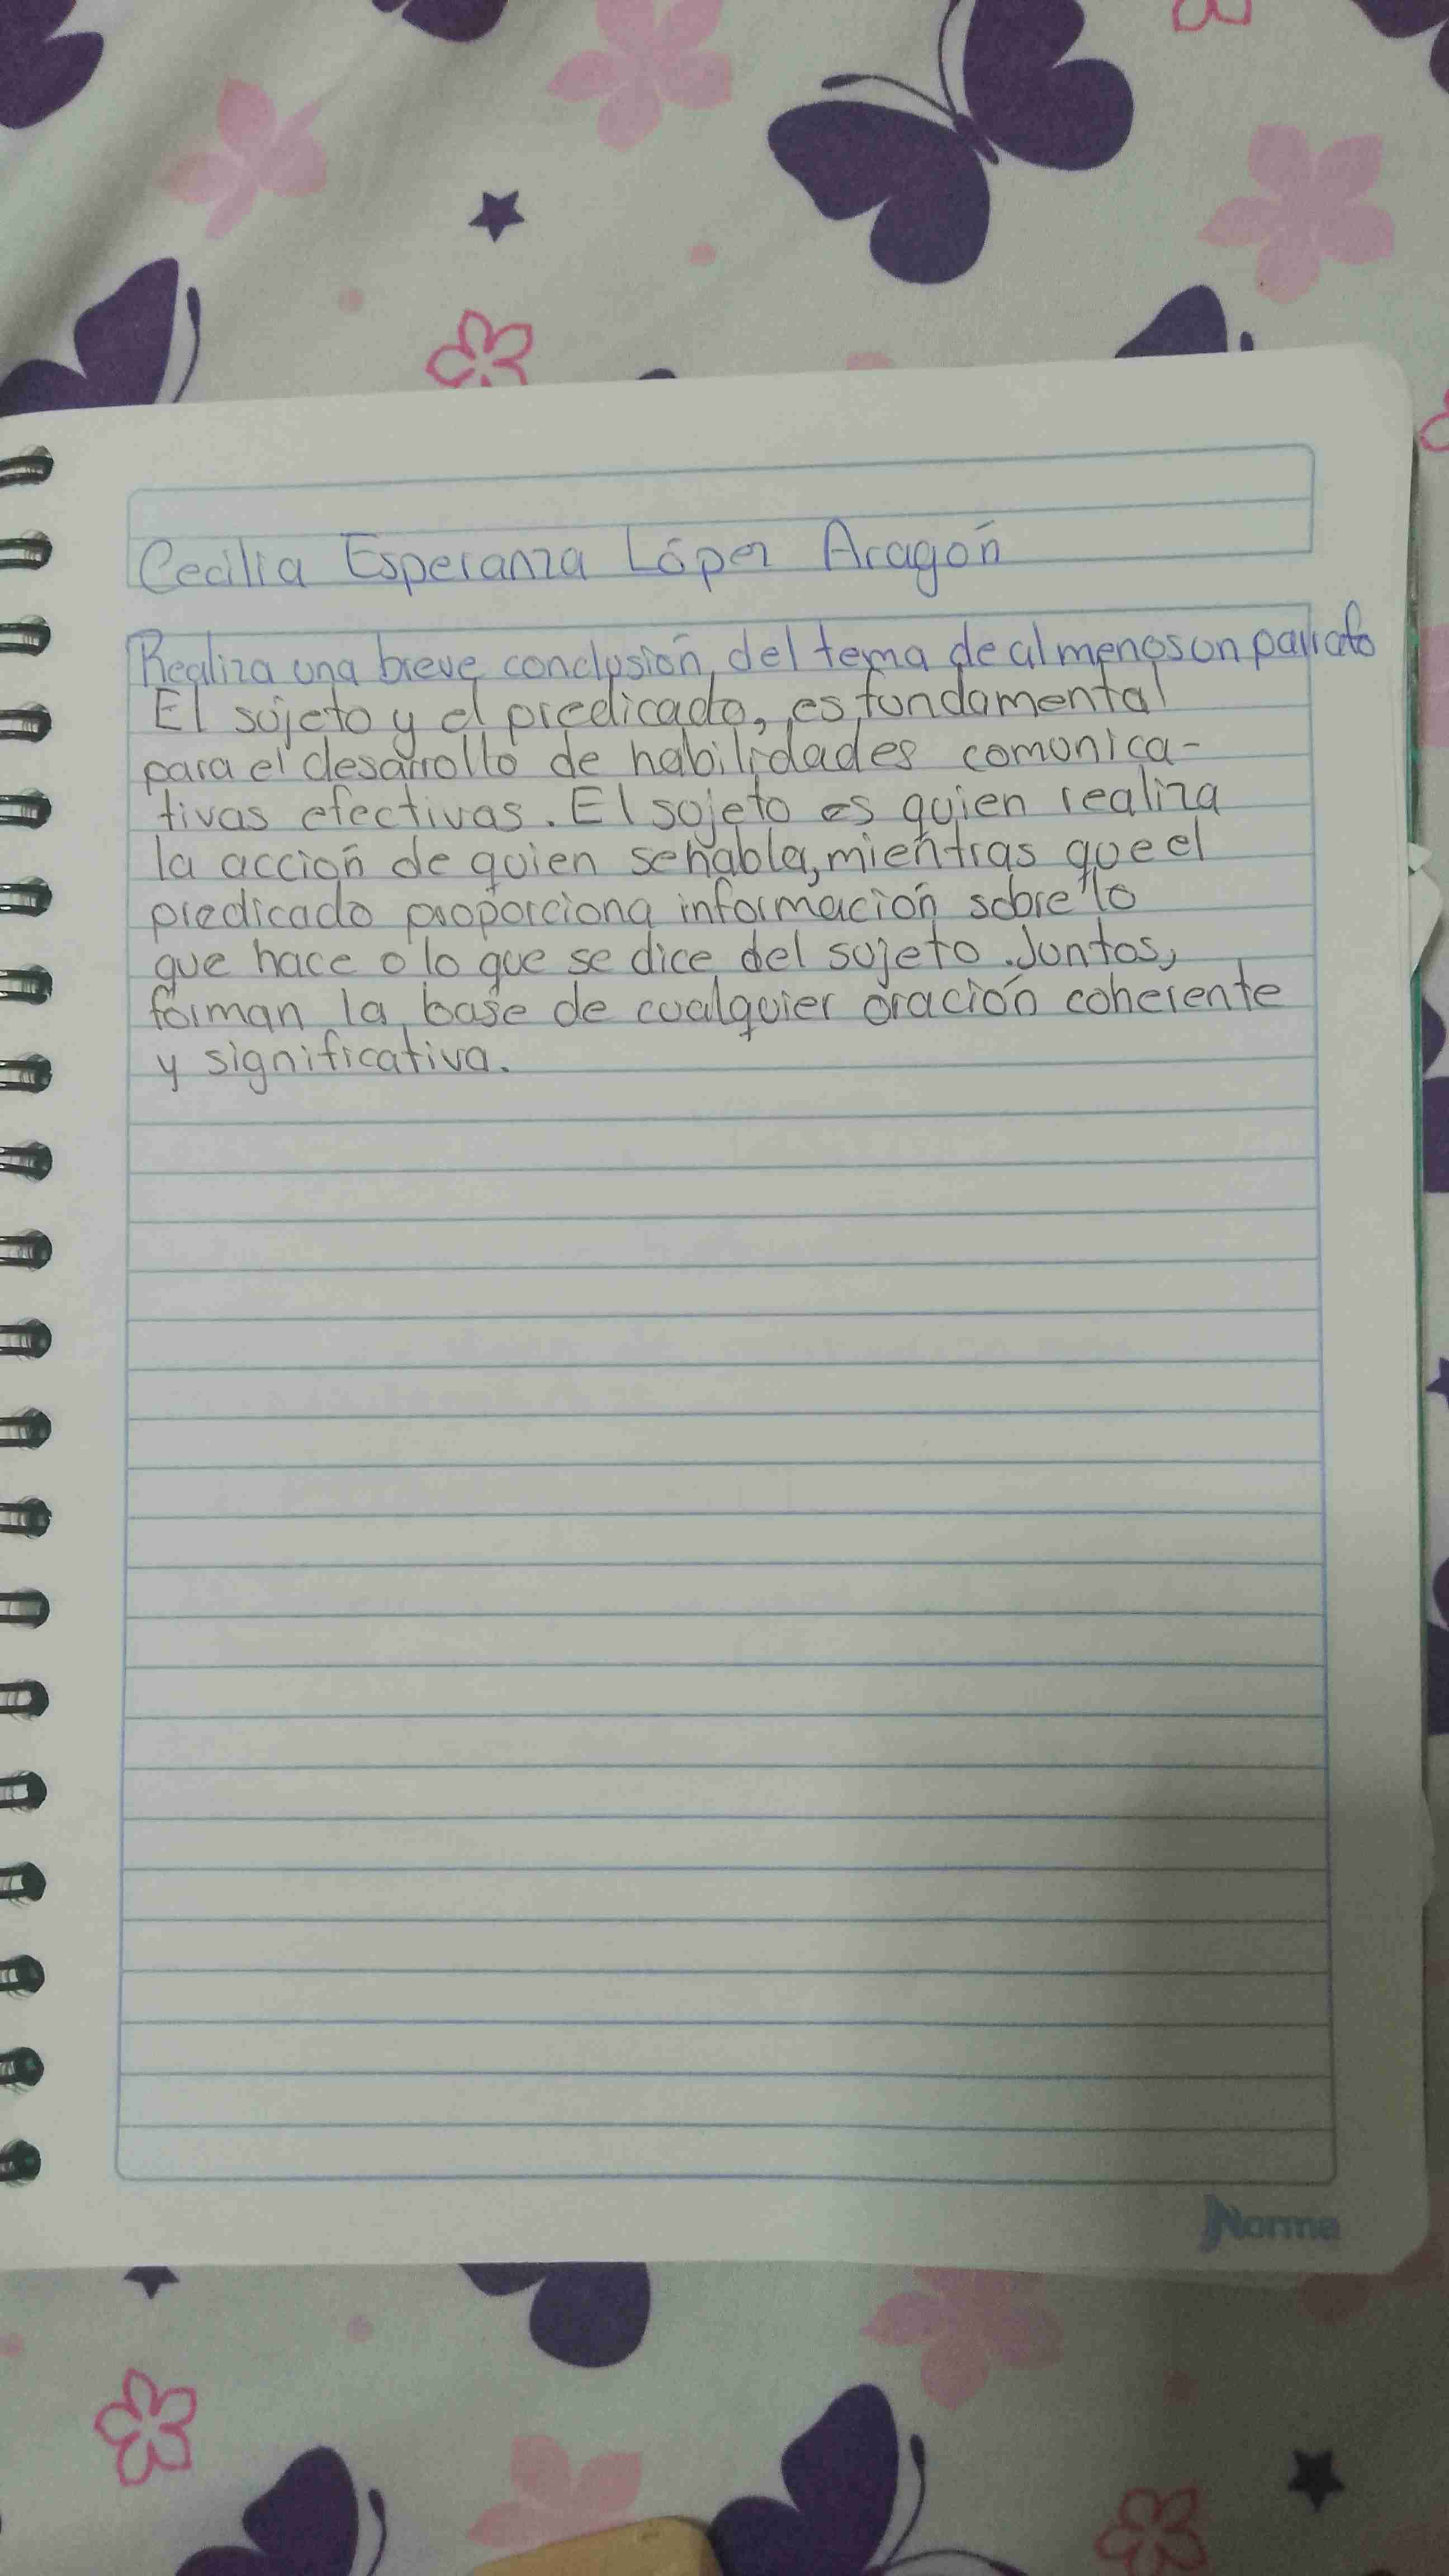 Cecilia Esperanza López Aragón
Realiza una breve conclusión del tema de al menos un párrafo
El sujeto y el predicado, es fundamental
para el desarrollo de habilidades comunica-
tivas efectivas. El sujeto es quien realiza
la acción de quien se habla, mientras que el
predicado proporciona información sobre lo
que hace o lo que se dice del sujeto. Juntos,
forman la base de cualquier oración coherente
y significativa.
Norma